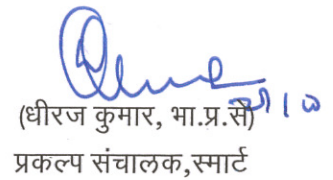 (धीरज कुमार, भा.प्र.से)
प्रकल्प संचालक,स्मार्ट